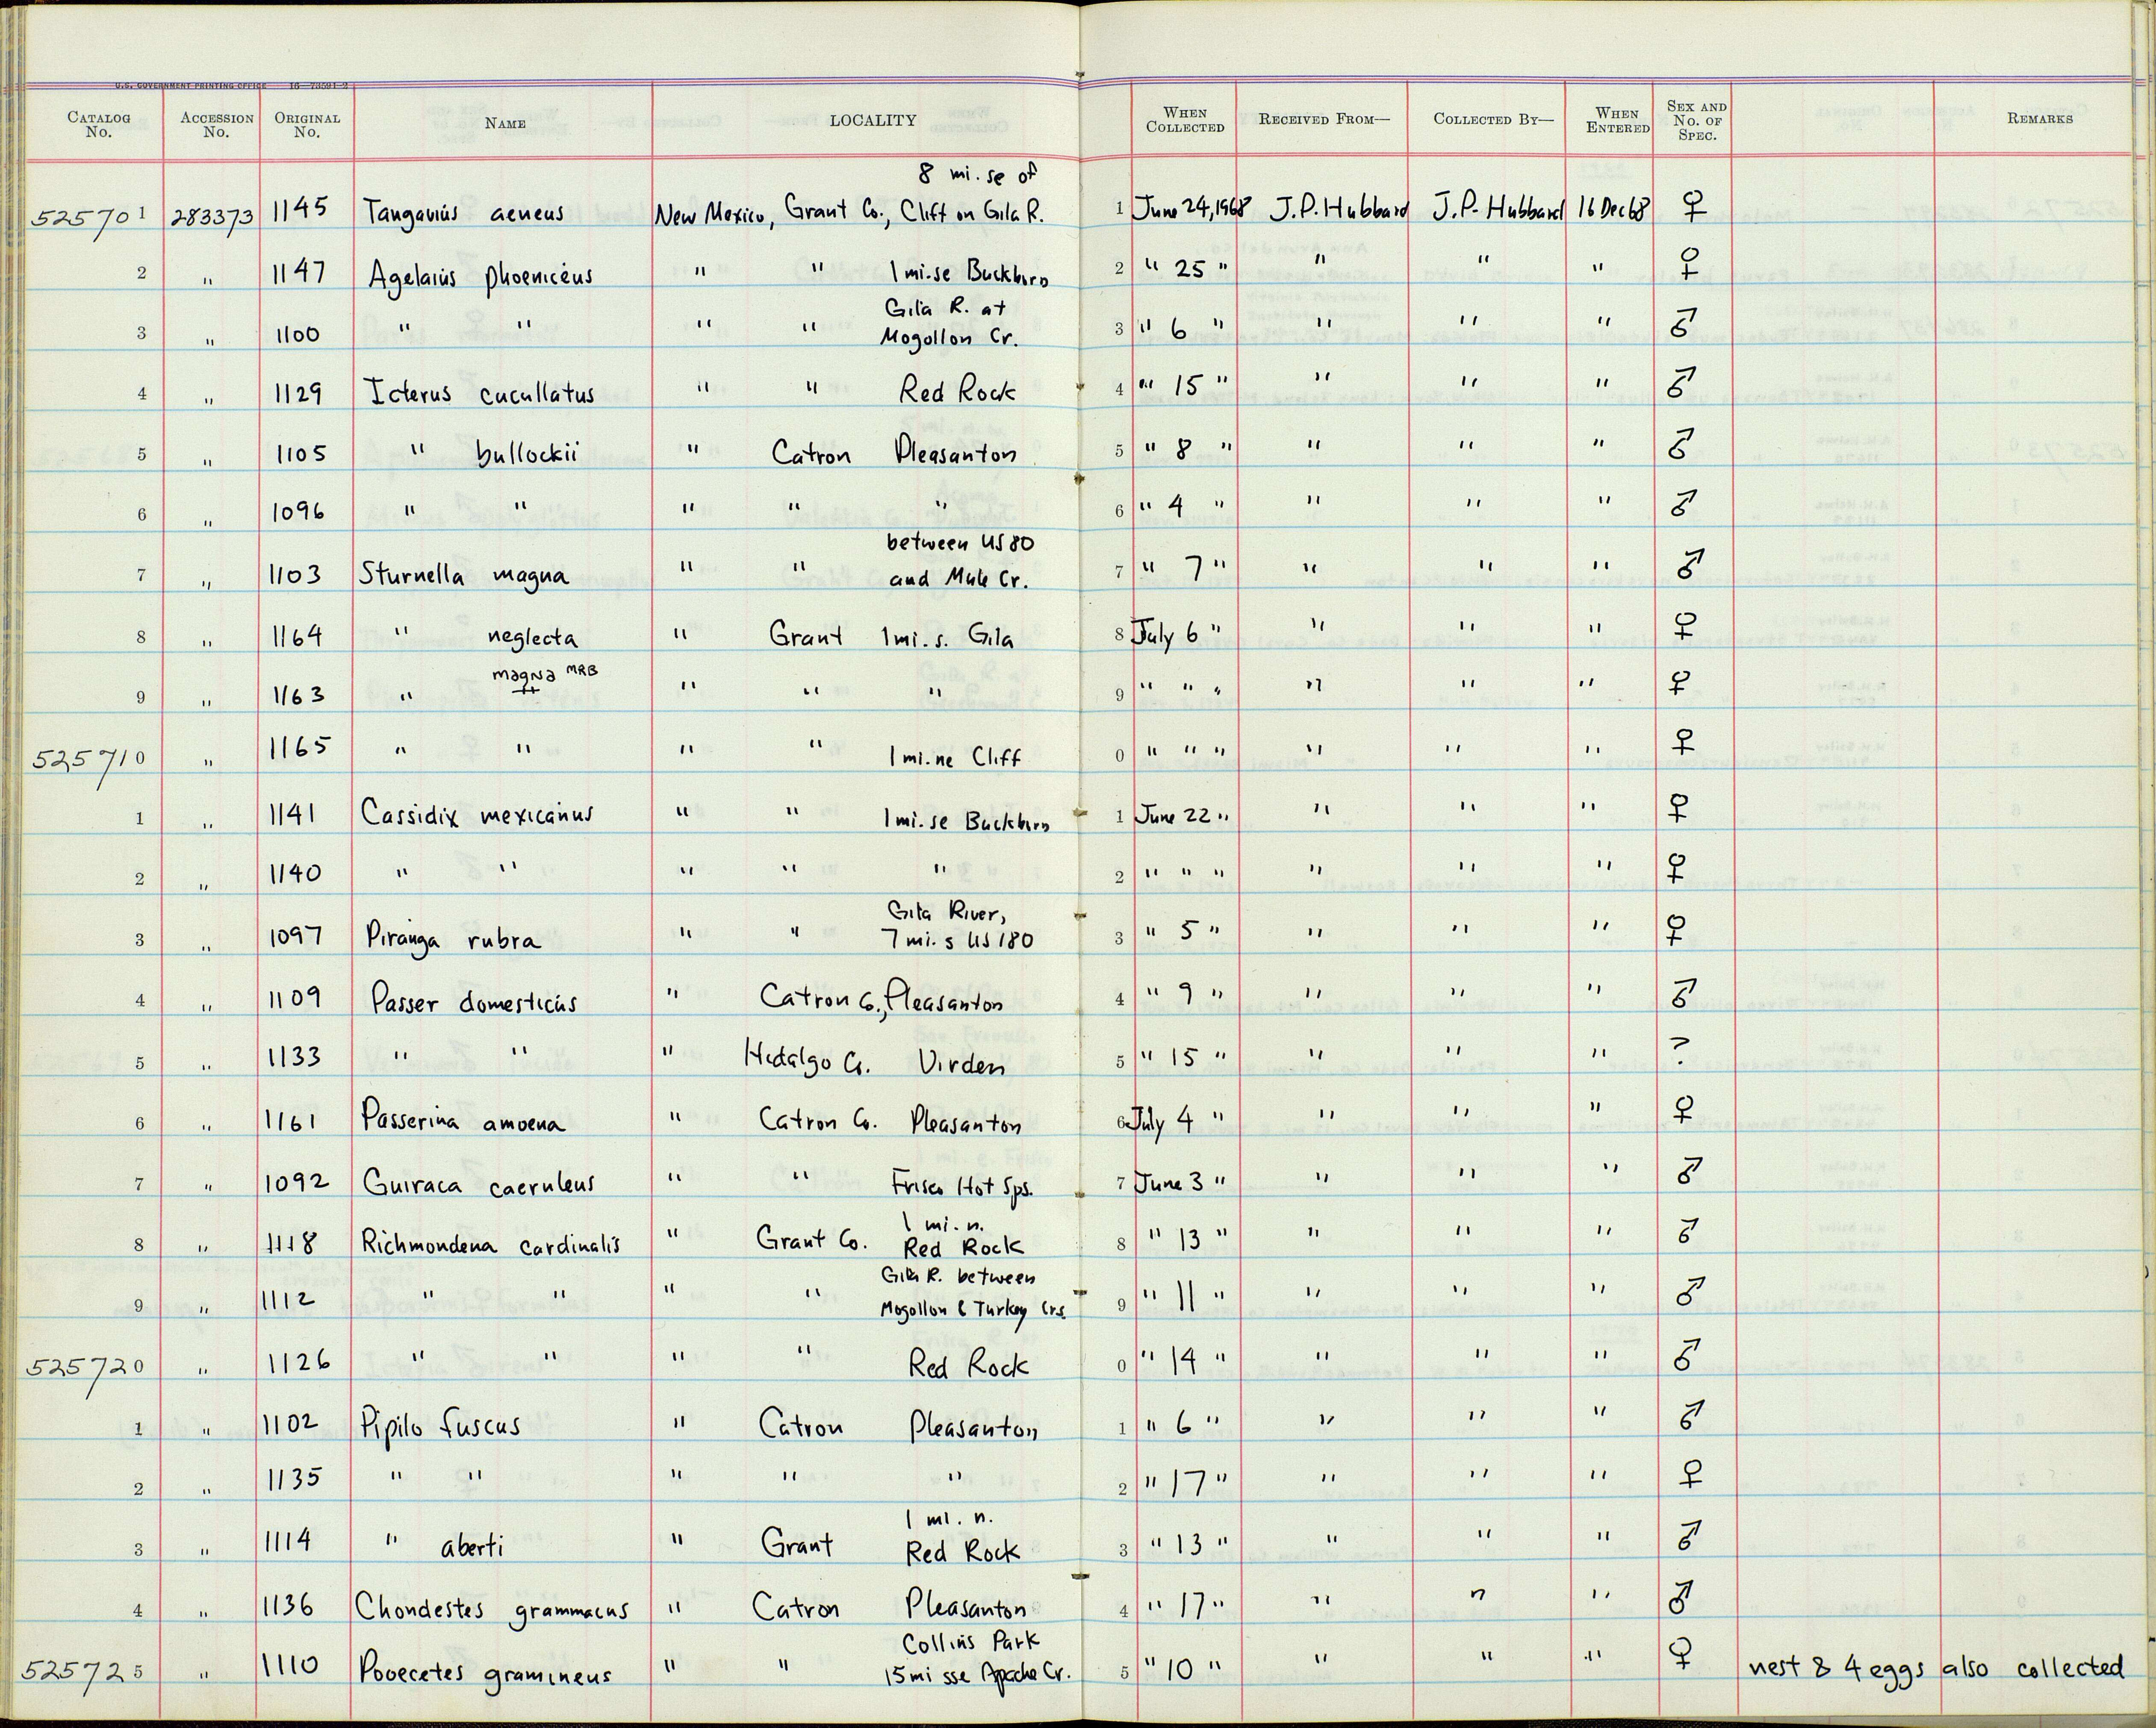 U.S. GOVERNMENT PRINTING OFFICE 16—73591-2
CATALOG No. ACCESSION No. ORIGINAL No. NAME LOCALITY WHEN COLLECTED RECEIVED FROM— COLLECTED BY— WHEN ENTERED SEX AND No. OF SPEC. REMARKS
8 mi. se of
525701 283373 1145 Tangavius aeneus New Mexico, Grant Co., Cliff on Gila R. 1 June 24, 1968 J.P. Hubbard J.P. Hubbard 16 Dec 68 ♀
2 " 1147 Agelaius phoeniceus " " 1 mi. se Buckhorn 2 " 25 " " " " ♀
Gila R. at
3 " 1100 " " " " Mogollon Cr. 3 " 6 " " " " ♂
4 " 1129 Icterus cucullatus " " Red Rock 4 " 15 " " " " ♂
5 " 1105 " bullockii " Catron Pleasanton 5 " 8 " " " " ♂
6 " 1096 " " " " " 6 " 4 " " " " ♂
between US 80
7 " 1103 Sturnella magna " " and Mule Cr. 7 " 7 " " " " ♂
8 " 1164 " neglecta " Grant 1 mi. s. Gila 8 July 6 " " " " ♀
magna MRB
9 " 1163 " " " " " 9 " " " " " " ♀
525710 " 1165 " " " " 1 mi. ne Cliff 0 " " " " " " ♀
1 " 1141 Cassidix mexicanus " " 1 mi. se Buckhorn 1 June 22 " " " " ♀
2 " 1140 " " " " " 2 " " " " " " ♀
Gila River,
3 " 1097 Piranga rubra " " 7 mi. s US 180 3 " 5 " " " " ♀
4 " 1109 Passer domesticus " Catron Co., Pleasanton 4 " 9 " " " " ♂
5 " 1133 " " " Hidalgo Co. Virden 5 " 15 " " " " ?
6 " 1161 Passerina amoena " Catron Co. Pleasanton 6 July 4 " " " " ♀
7 " 1092 Guiraca caeruleus " " Frisco Hot Sps. 7 June 3 " " " " ♂
1 mi. n.
8 " 1118 Richmondena cardinalis " Grant Co. Red Rock 8 " 13 " " " " ♂
Gila R. between
9 " 1112 " " " " Mogollon & Turkey Crs. 9 " 11 " " " " ♂
525720 " 1126 " " " " Red Rock 0 " 14 " " " " ♂
1 " 1102 Pipilo fuscus " Catron Pleasanton 1 " 6 " " " " ♂
2 " 1135 " " " " " 2 " 17 " " " " ♀
1 mi. n.
3 " 1114 " aberti " Grant Red Rock 3 " 13 " " " " ♂
4 " 1136 Chondestes grammacus " Catron Pleasanton 4 " 17 " " " " ♂
Collins Park
525725 " 1110 Pooecetes gramineus " " 15 mi sse Apache Cr. 5 " 10 " " " " ♀ nest & 4 eggs also collected